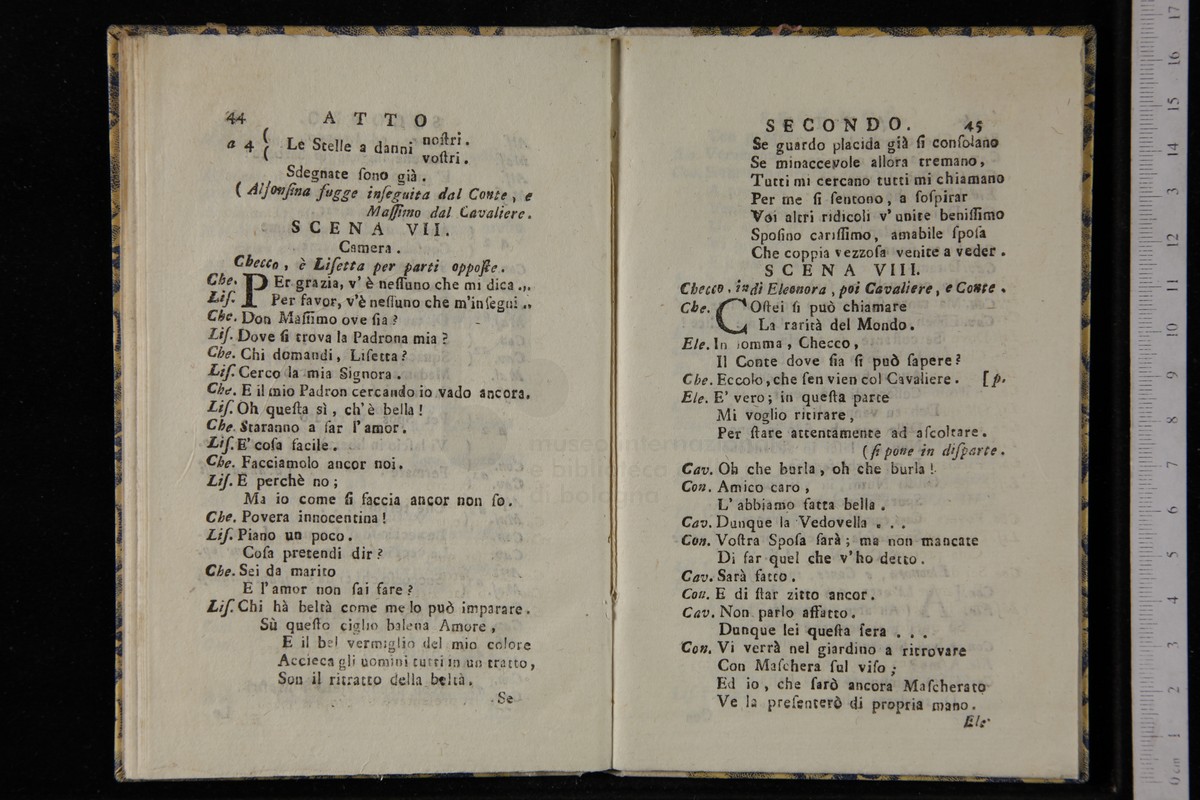 44 ATTO
a 4 ( Le Stelle a danni noſtri.
( voſtri.
Sdegnate ſono già.
( Alfonſina fugge inſeguita dal Conte, e
Maſſimo dal Cavaliere.
SCENA VII.
Camera.
Checco, è Liſetta per parti oppoſte.
Che. PEr grazia, v' è neſſuno che mi dica.,,
Liſ. Per favor, v'è neſſuno che m'inſegni.,,
Che. Don Maſſimo ove ſia?
Liſ. Dove ſi trova la Padrona mia?
Che. Chi domandi, Liſetta?
Liſ. Cerco la mia Signora.
Che. E il mio Padron cercando io vado ancora.
Liſ. Oh queſta sì, ch'è bella!
Che. Staranno a far l'amor.
Liſ. E' coſa facile.
Che. Facciamolo ancor noi.
Liſ. E perchè no;
Ma io come ſi faccia ancor non ſo.
Che. Povera innocentina!
Liſ. Piano un poco.
Coſa pretendi dir?
Che. Sei da marito
E l'amor non ſai fare?
Liſ. Chi hà beltà come me lo può imparare.
Sù queſto ciglio balena Amore,
E il bel vermiglio del mio colore
Accieca gli uomini tutti in un tratto,
Son il ritratto della beltà.
Se
SECONDO. 45
Se guardo placida già ſi conſolano
Se minaccevole allora tremano,
Tutti mi cercano tutti mi chiamano
Per me ſi ſentono, a ſoſpirar
Voi altri ridicoli v'unite beniſſimo
Spoſino cariſſimo, amabile ſpoſa
Che coppia vezzoſa venite a veder.
SCENA VIII.
Checco, indi Eleonora, poi Cavaliere, e Conte.
Che. COſtei ſi può chiamare
La rarità del Mondo.
Ele. In ſomma, Checco,
Il Conte dove ſia ſi può ſapere?
Che. Eccolo, che ſen vien col Cavaliere. [p.
Ele. E' vero; in queſta parte
Mi voglio ritirare,
Per ſtare attentamente ad aſcoltare.
(ſi pone in diſparte.
Cav. Oh che burla, oh che burla!
Con. Amico caro,
L'abbiamo fatta bella.
Cav. Dunque la Vedovella . . .
Con. Voſtra Spoſa ſarà; ma non mancate
Di far quel che v'ho detto.
Cav. Sarà fatto.
Con. E di ſtar zitto ancor.
Cav. Non parlo affatto.
Dunque lei queſta ſera . . .
Con. Vi verrà nel giardino a ritrovare
Con Maſchera ſul viſo;
Ed io, che ſarò ancora Maſcherato
Ve la preſenterò di propria mano.
Ele
museo internazionale
e biblioteca
di bologna
0 cm 1 2 3 4 5 6 7 8 9 10 11 12 13 14 15 16 17